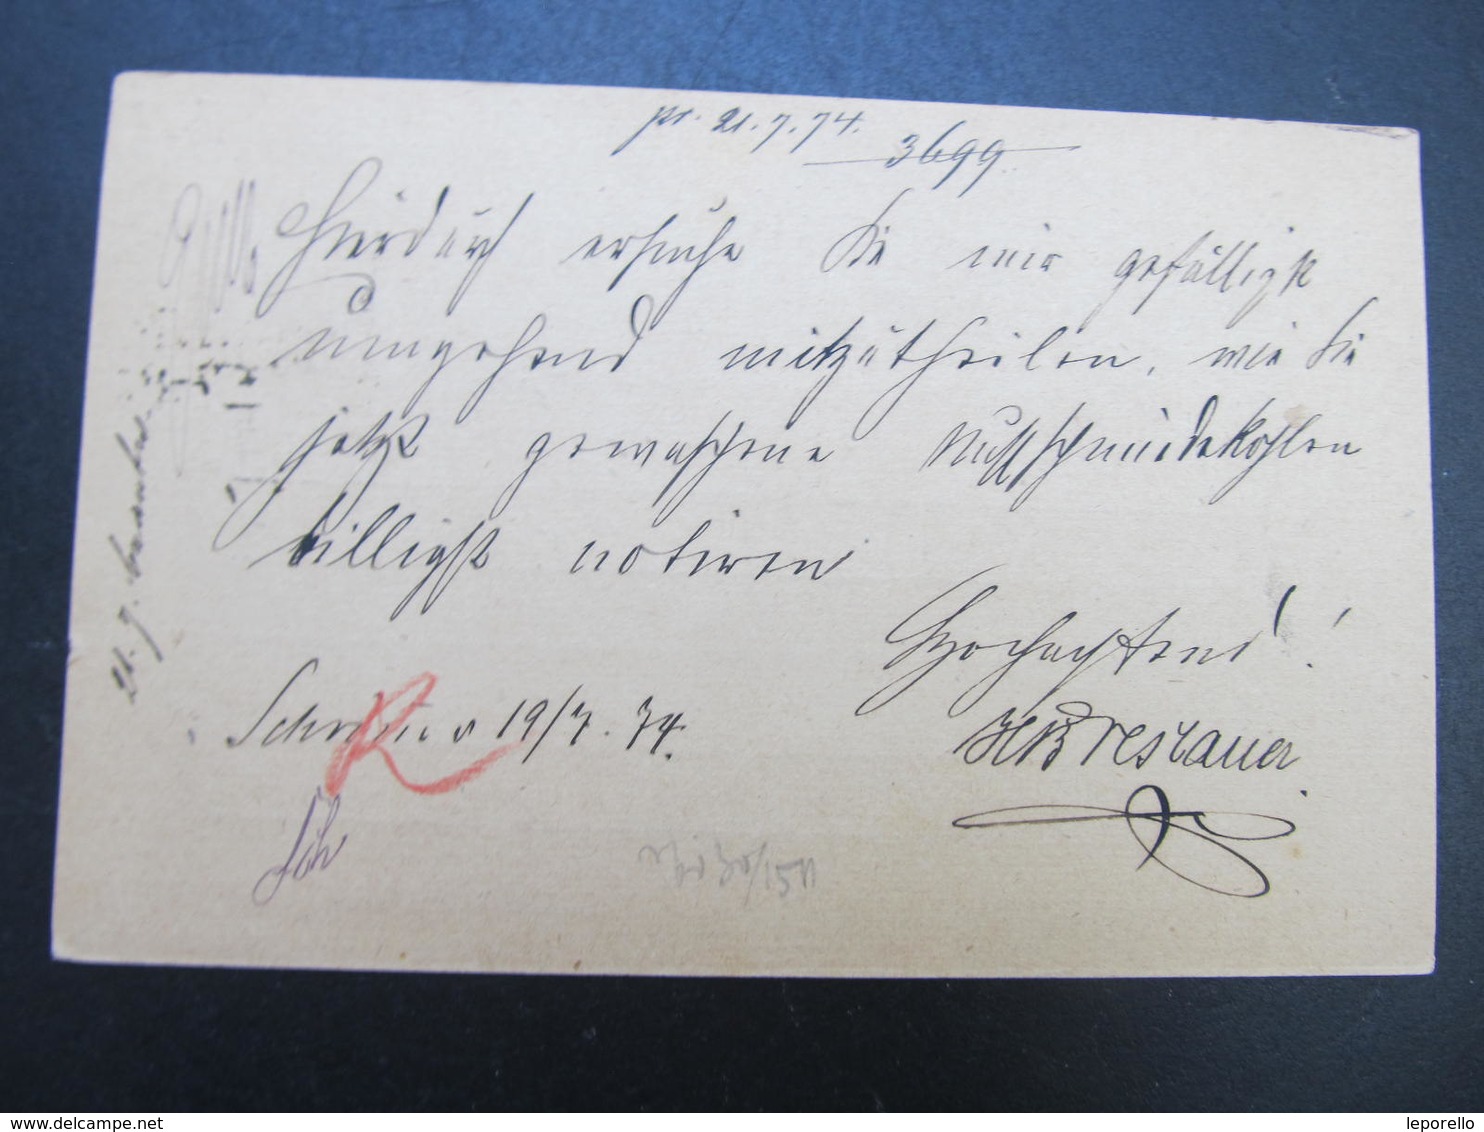 pr. 21.7.74.
3699
Hierdurch ersuche Sie mir gefälligst
umgehend mitzutheilen, wie Sie
jetzt gewaschene Nußschmiedekohlen
billigst notiren
Hochachtend!
19/7. 74.
HBreslauer
R
21. 7.
www.delcampe.net
leporello